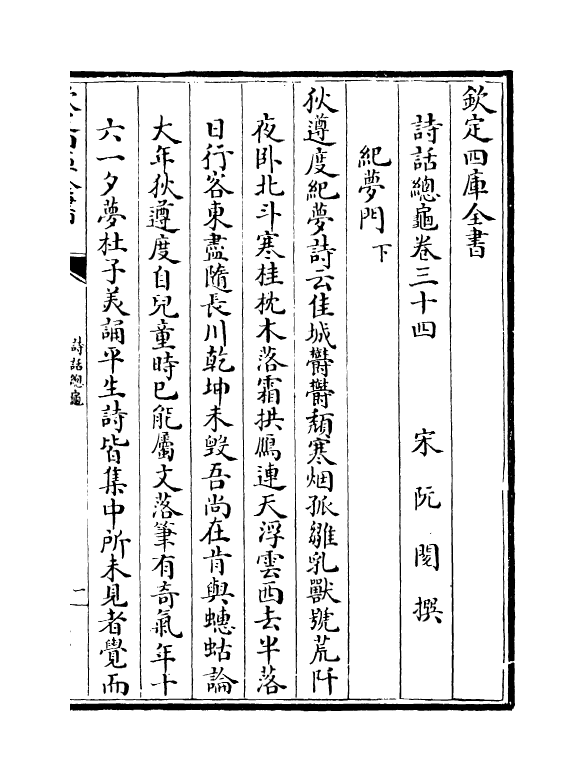 欽定四庫全書
詩話總龜卷三十四
宋 阮閱 撰
紀夢門下
狄遵度紀夢詩云佳城鬱鬱頽寒烟孤雛乳獸號荒阡
夜卧北斗寒桂枕木落霜拱鴈連天浮雲西去半落
日行客東盡隨長川乾坤未毀吾尚在肯與蟪蛄論
大年狄遵度自兒童時已能屬文落筆有奇氣年十
六一夕夢杜子美誦平生詩皆集中所未見者覺而
詩話總龜